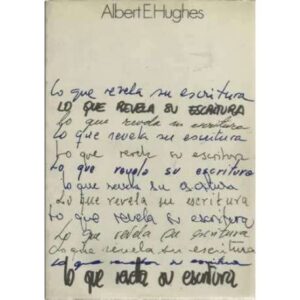 Albert E. Hughes
lo que revela su escritura
LO QUE REVELA SU ESCRITURA
Lo que revela su escritura
Lo que revela su escritura
Lo que revela su escritura
Lo que revela su escritura
lo que revela su escritura
Lo que revela su escritura
Lo que revela su escritura
Lo que revela su escritura
Lo que revela su escritura
Lo que revela su escritura
lo que revela su escritura